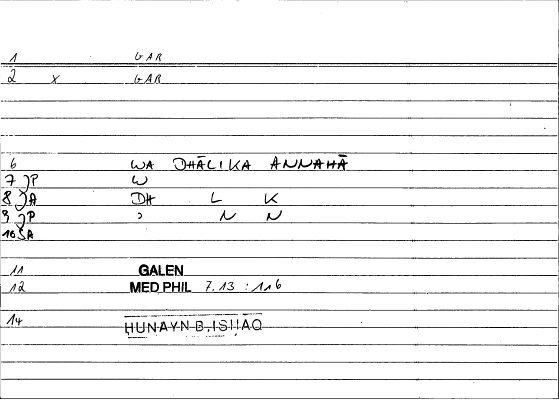 1 GAR
2 x GAR
6 WA DHĀLIKA ANNAHĀ
7 JP W
8 JA DH L K
9 JP ʾ N N
10 JA
11 GALEN
12 MED PHIL 7.13 : 116
14 HUNAYN B. ISHAQ